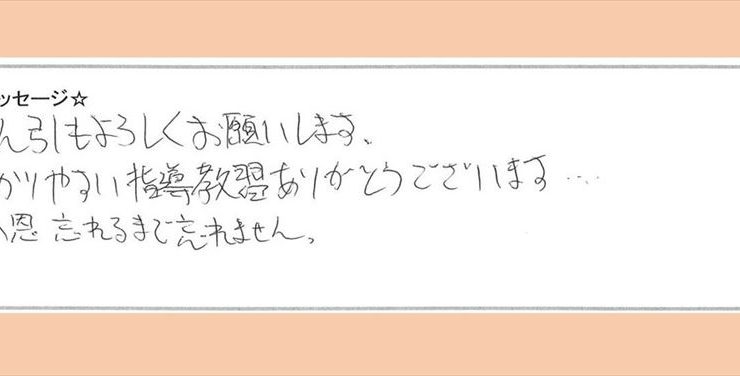 ッセージ☆
ん引もよろしくお願いします、
かりやすい指導教習ありがとうございます…
恩 忘れるまで忘れません。